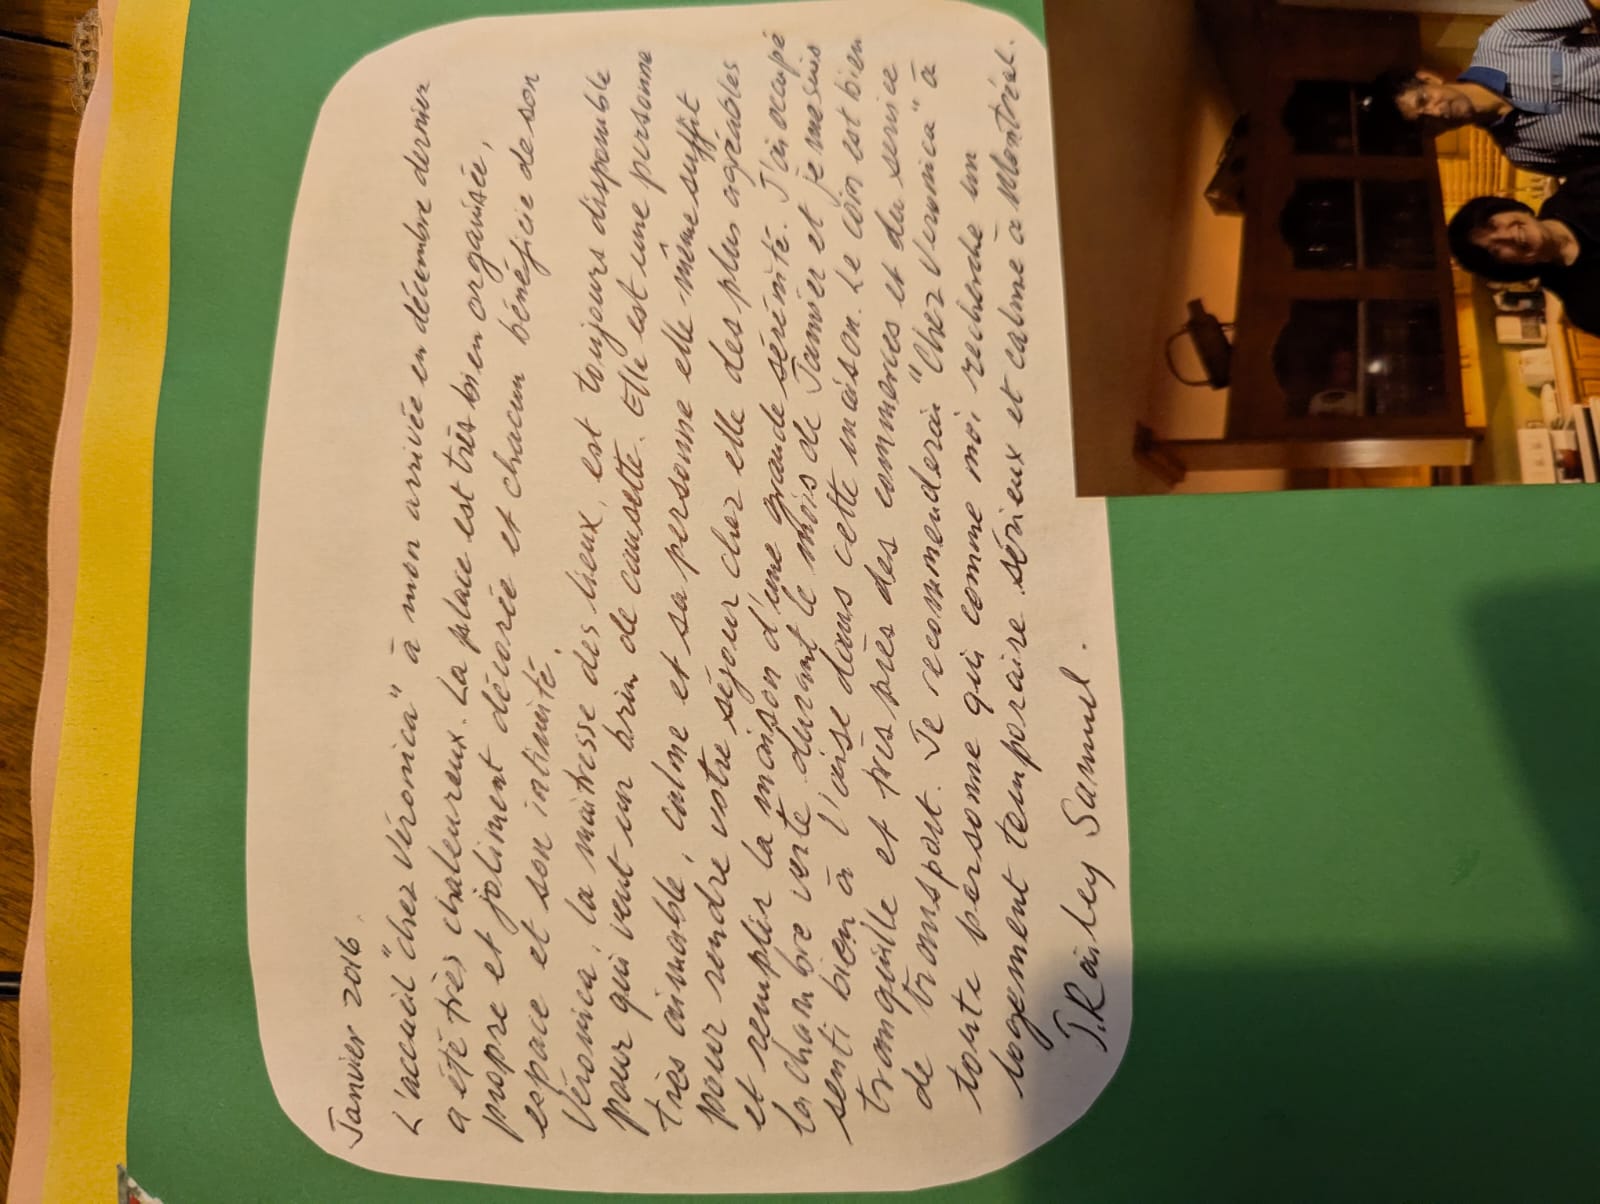 Janvier 2016.
L'accueil "chez Véronica" à mon arrivée en décembre dernier
a été très chaleureux. La place est très bien organisée,
propre et joliment décorée et chacun bénéficie de son
espace et son intimité.
Véronica, la maitresse des lieux, est toujours disponible
pour qui veut un brin de causette. Elle est une personne
très aimable, calme et sa personne elle-même suffit
pour rendre votre séjour chez elle des plus agréables
et remplir la maison d'une grande sérénité. J'ai occupé
la chambre verte durant le mois de Janvier et je me suis
senti bien à l'aise dans cette maison. Le coin est bien
tranquille et très près des commerces et du service
de transport. Je recommenderai "Chez Veronica" à
toute personne qui comme moi recherche un
logement temporaire sérieux et calme à Montréal.
J.Rainley Samuel.